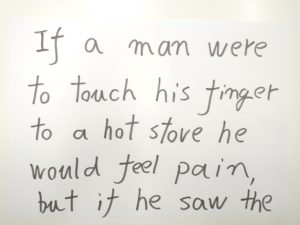 If a man were
to touch his finger
to a hot stove he
would feel pain,
but if he saw the